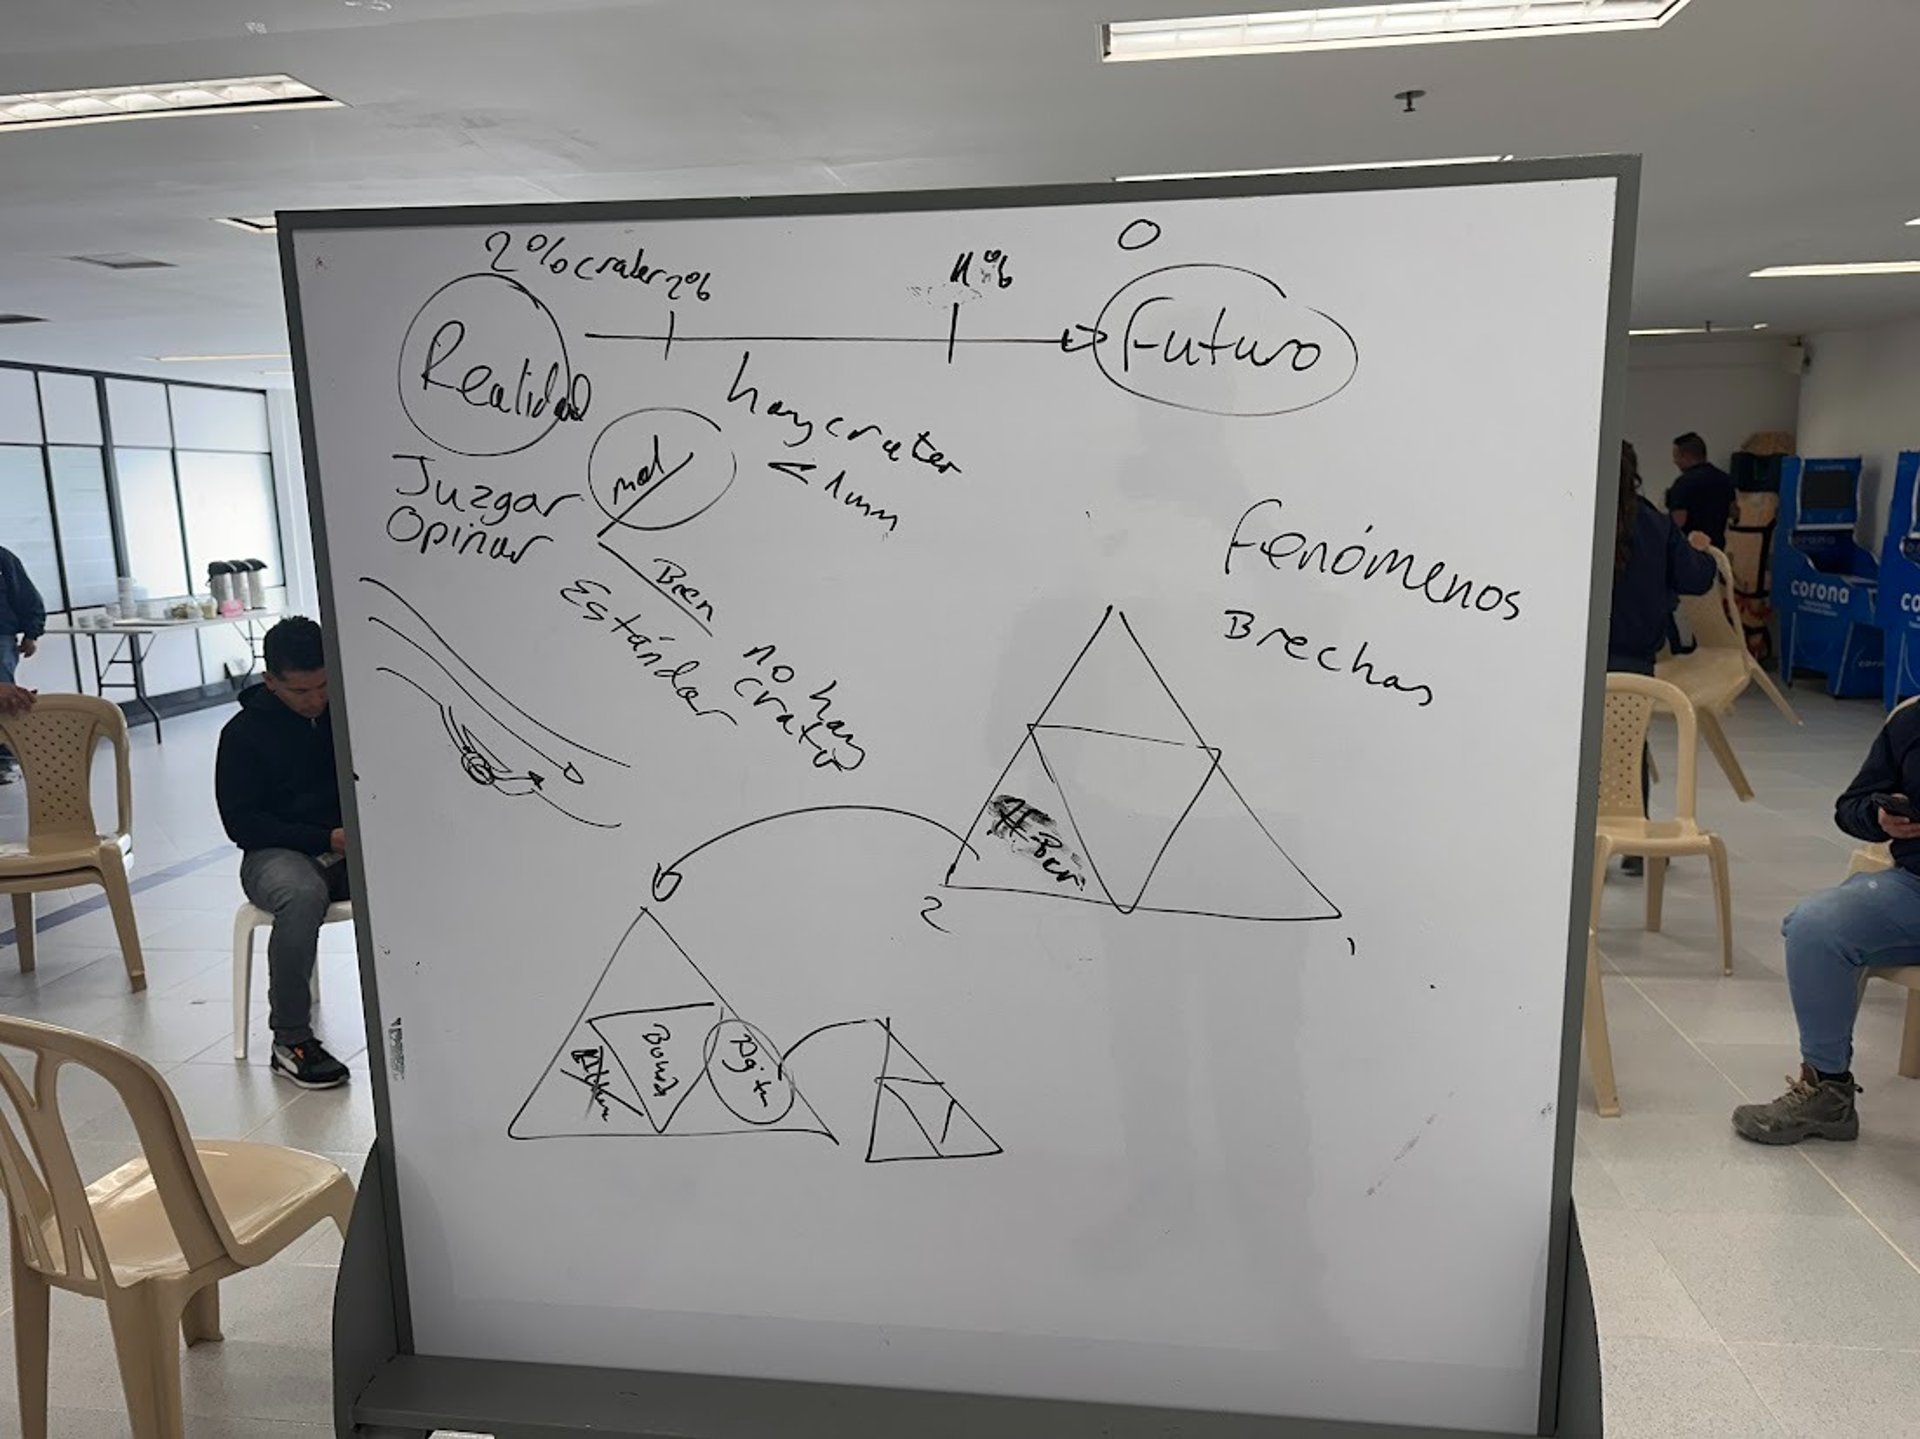 2% crater 2%
0
Realidad
Futuro
hay crater
< 1mm
mal
Juzgar
Opinar
Bien
Estándar
no hay
crater
Fenómenos
Brechas
2
1
corona
corona